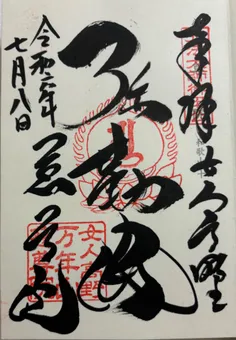 奉拝 女人高野
弥勒佛
慈尊院
令和元年
七月八日
女人高野
万年山